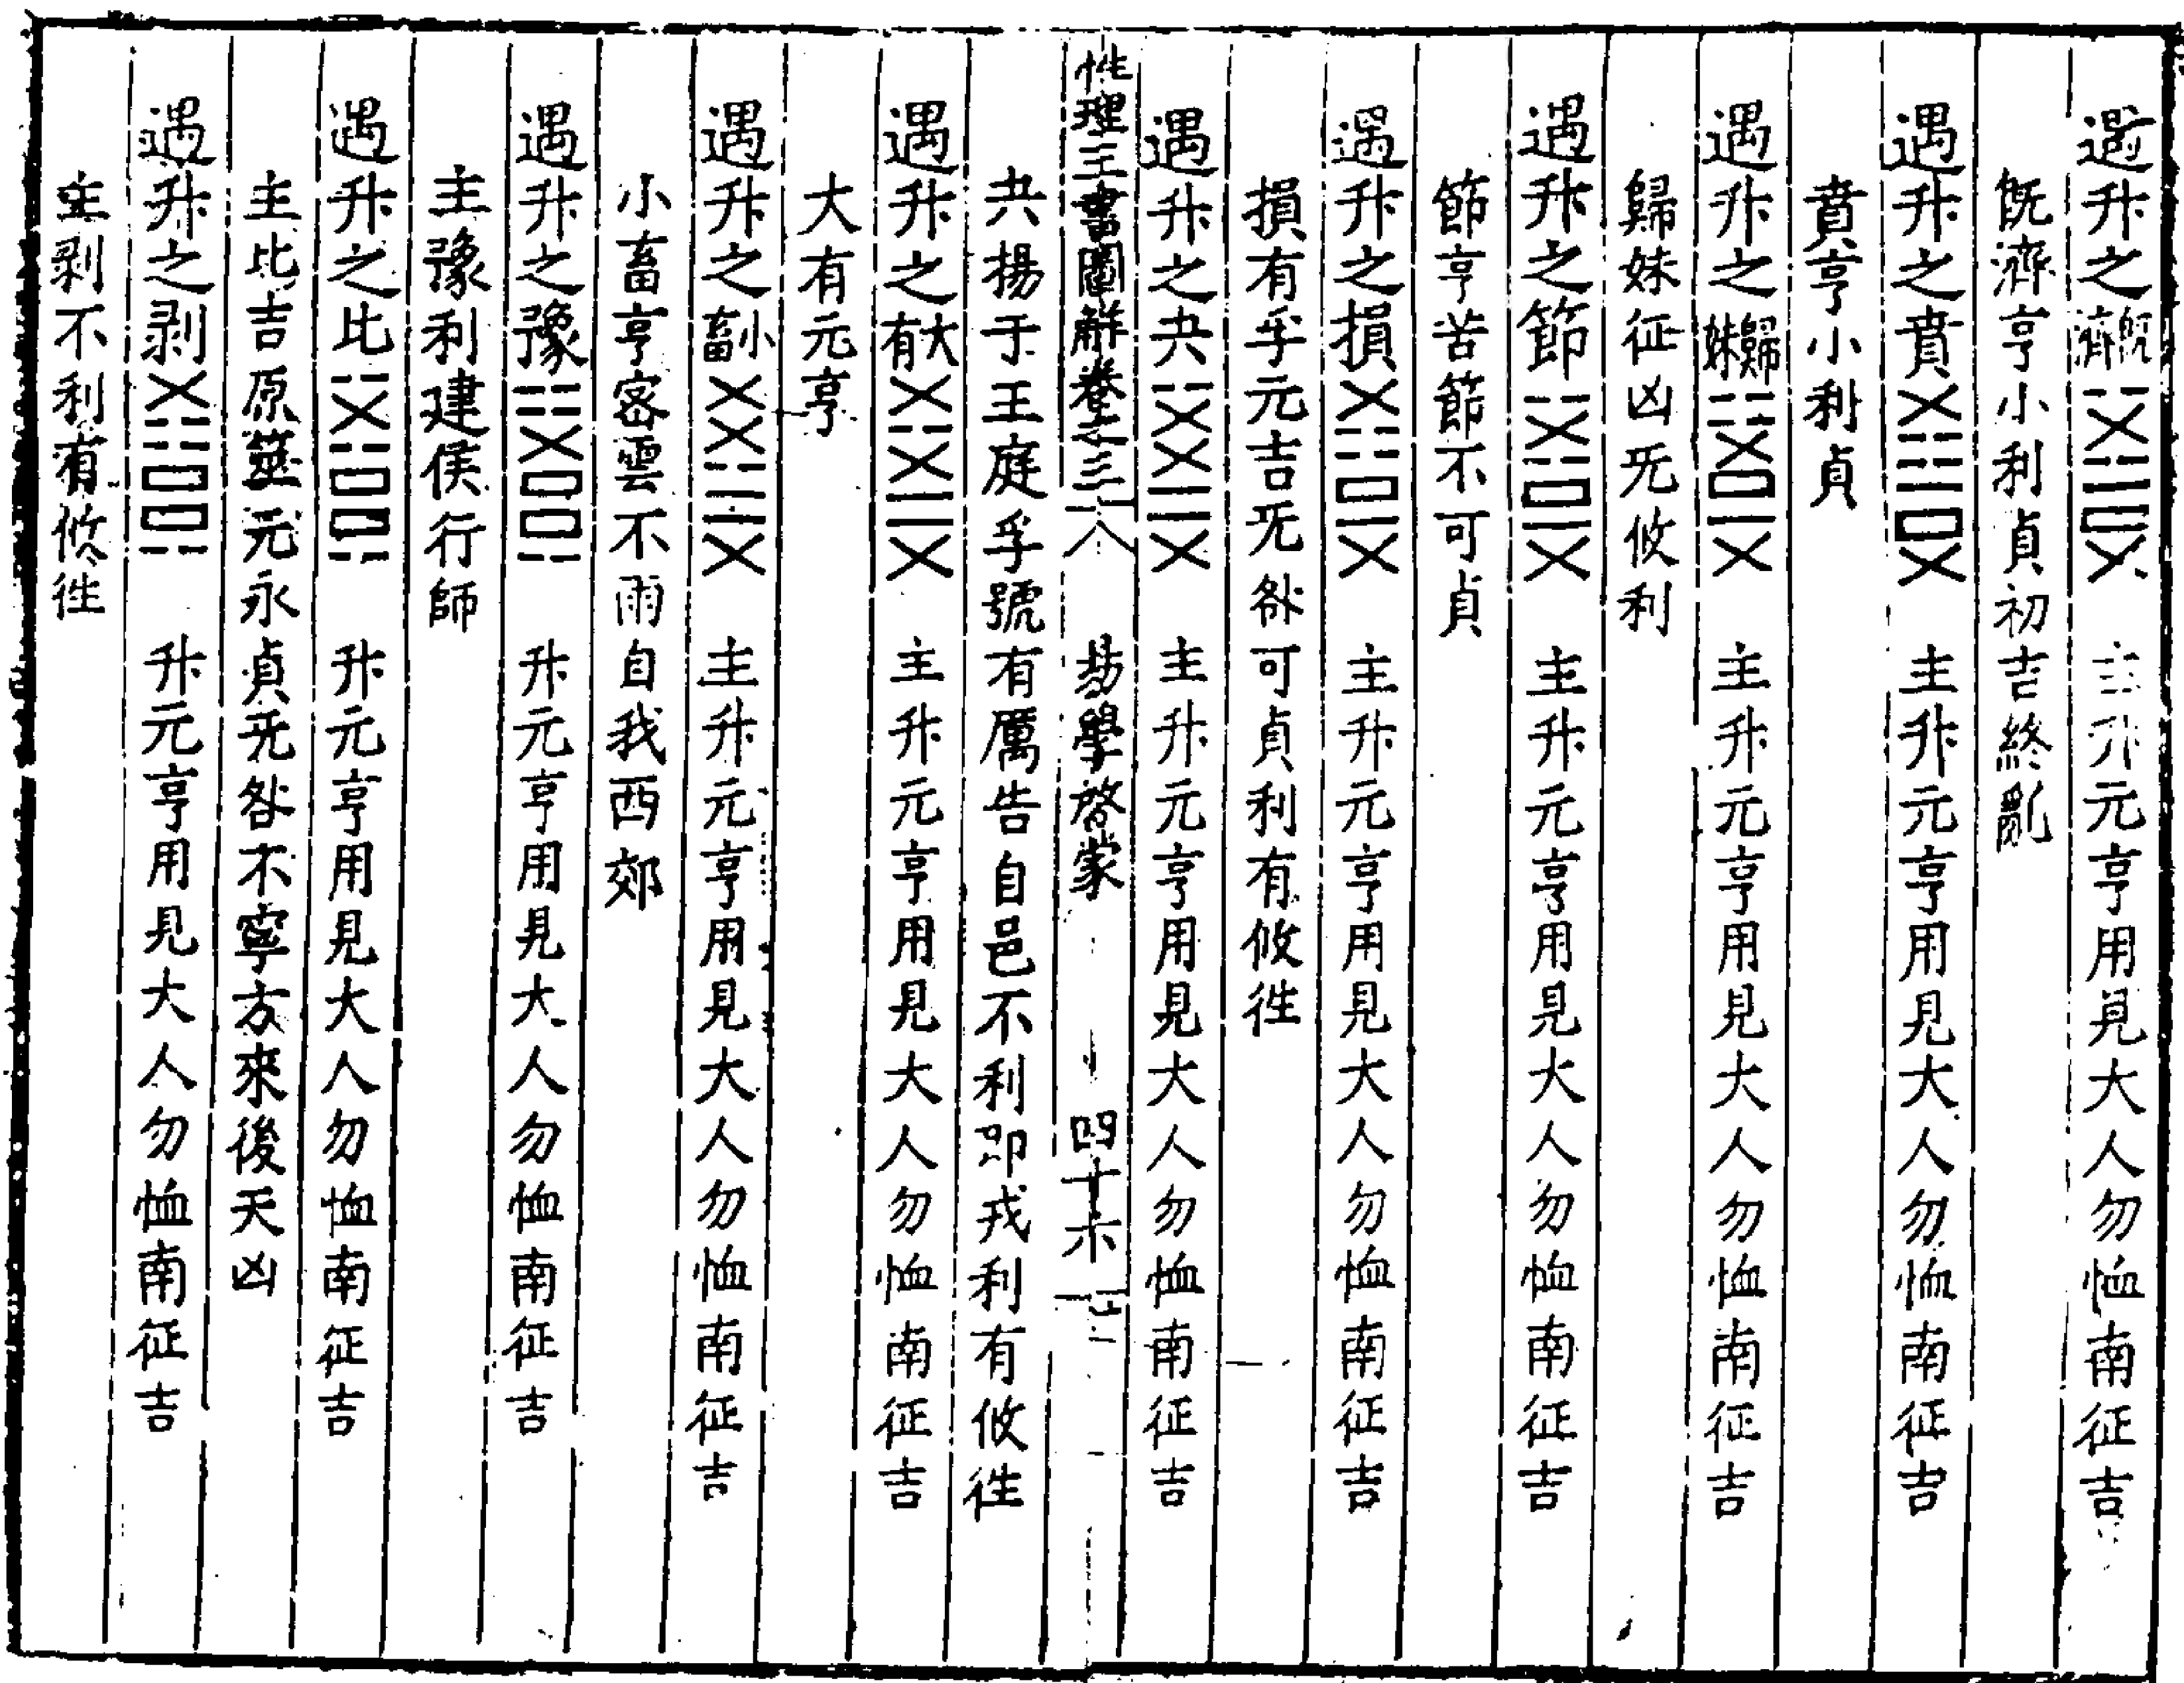 遇升之既濟 主升元亨用見大人勿恤南征吉
既濟亨小利貞初吉終亂
遇升之賁 主升元亨用見大人勿恤南征吉
賁亨小利貞
遇升之歸妹 主升元亨用見大人勿恤南征吉
歸妹征凶旡攸利
遇升之節 主升元亨用見大人勿恤南征吉
節亨苦節不可貞
遇升之損 主升元亨用見大人勿恤南征吉
損有孚元吉旡咎可貞利有攸往
遇升之夬 主升元亨用見大人勿恤南征吉
性理三書圖解卷之三 易學啓蒙 四十六
夬揚于王庭孚號有厲告自邑不利即戎利有攸往
遇升之大有 主升元亨用見大人勿恤南征吉
大有元亨
遇升之小畜 主升元亨用見大人勿恤南征吉
小畜亨密雲不雨自我西郊
遇升之豫 升元亨用見大人勿恤南征吉
主豫利建侯行師
遇升之比 升元亨用見大人勿恤南征吉
主比吉原筮元永貞旡咎不寧方來後夫凶
遇升之剥 升元亨用見大人勿恤南征吉
主剥不利有攸往